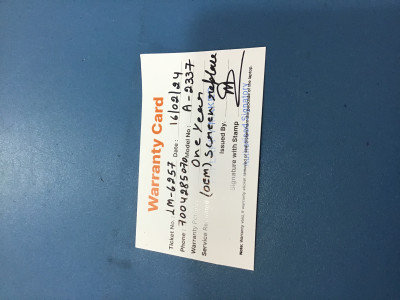 Warranty Card
Ticket No. LM-6257 Date: 16/02/24
Phone: 7004285070 Model No: A-2337
Warranty One Year
Service Re (OEM) Screen replace
Issued By.
Signature with Stamp
Signatory